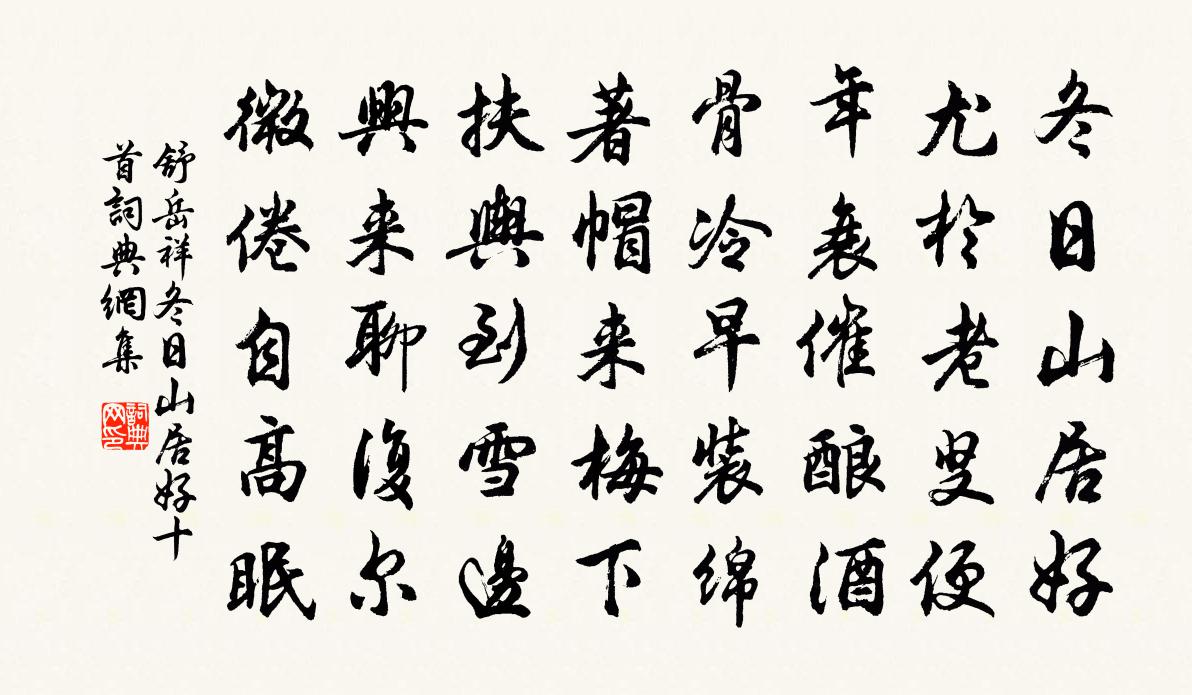 冬日山居好
尤於老叟便
年衰催酿酒
骨冷早装绵
著帽来梅下
扶舆到雪邊
興来聊復尔
微倦自高眠
舒岳祥冬日山居好十
首詞典網集
詞典网印